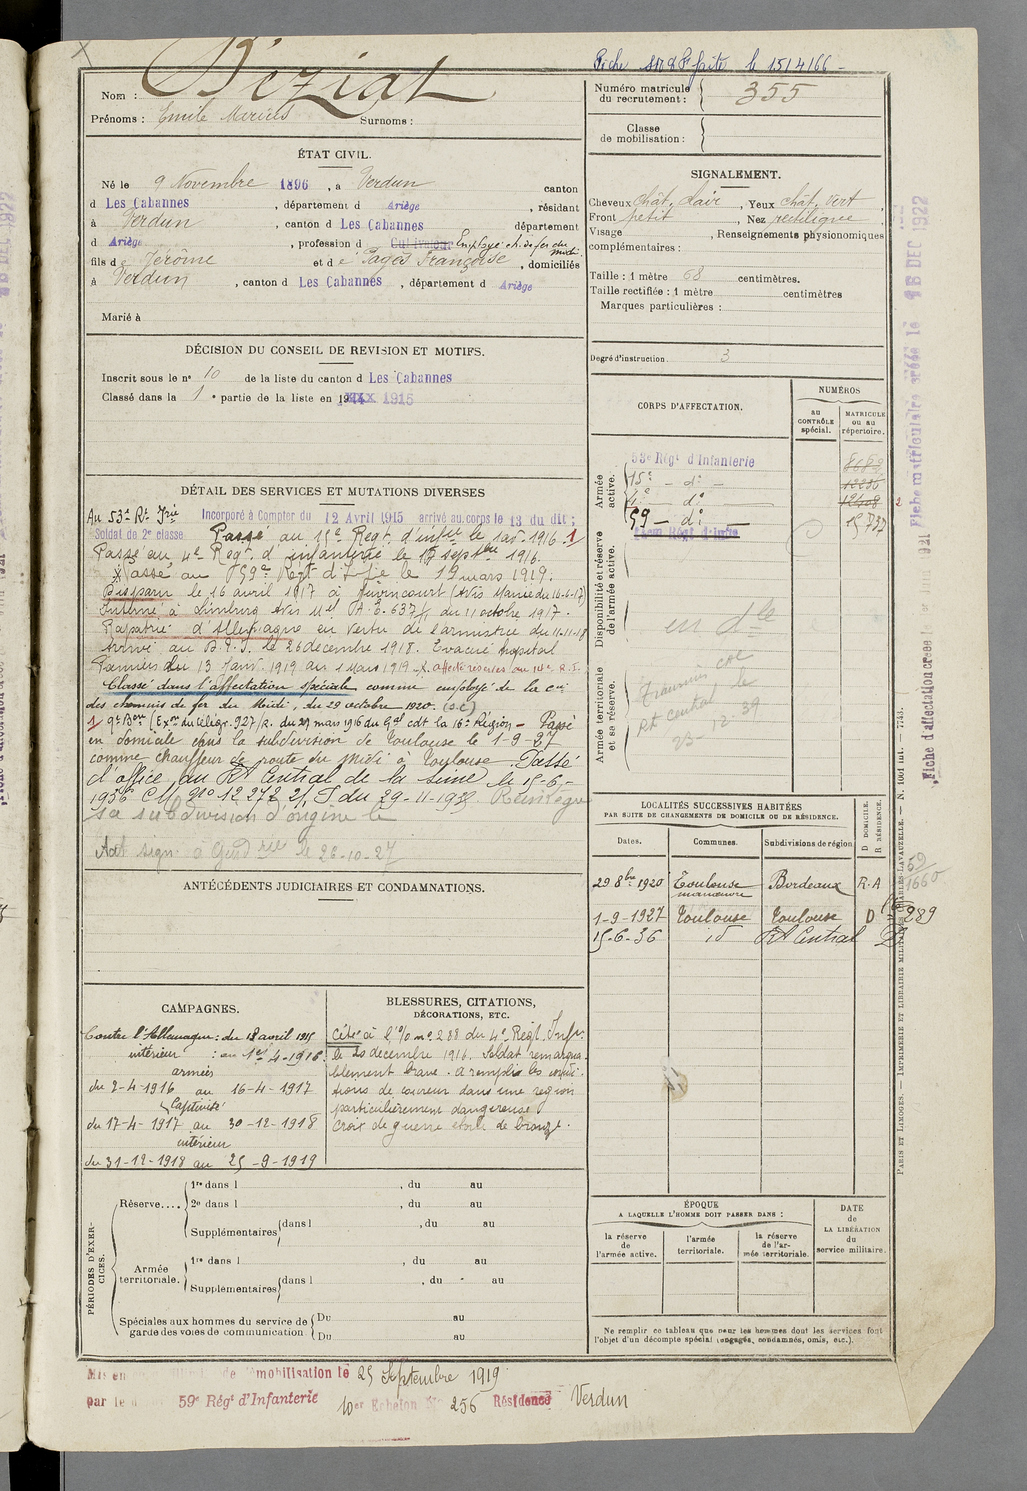 Fiche faite le 15/4/66 -
Nom : Béziat
Prénoms : Emile Marius Surnoms :
Numéro matricule du recrutement : 355
Classe de mobilisation :
ÉTAT CIVIL.
Né le 9 Novembre 1896, à Verdun canton
d Les Cabannes, département d Ariège, résidant
à Verdun, canton d Les Cabannes département
d Ariège, profession d Cultivateur Employé ch. de fer du Midi
fils de Jérôme et de Pagès Françoise, domiciliés
à Verdun, canton d Les Cabannes, département d Ariège
Marié à
SIGNALEMENT.
Cheveux chât. clair, Yeux chât. vert
Front petit, Nez rectiligne
Visage , Renseignements physionomiques
complémentaires :
Taille : 1 mètre 68 centimètres.
Taille rectifiée : 1 mètre centimètres
Marques particulières :
Degré d'instruction. 3
DÉCISION DU CONSEIL DE REVISION ET MOTIFS.
Inscrit sous le n° 10 de la liste du canton d Les Cabannes
Classé dans la 1e partie de la liste en 1915
CORPS D'AFFECTATION.
NUMÉROS
au CONTRÔLE spécial.
MATRICULE ou au répertoire.
Armée active.
53e Régt d'Infanterie
15e - do -
4e - do
59 - do -
14em Régt d'Infie
15737
Disponibilité et réserve de l'armée active.
en dle
Armée territoriale et sa réserve.
Rt Central le
23-12-39
DÉTAIL DES SERVICES ET MUTATIONS DIVERSES
Au 53e Rt Irie Incorporé à Compter du 12 Avril 1915 arrivé au corps le 13 du dit ;
Soldat de 2e classe Passé au 15e Regt. d'Infie le 1er avr 1916. 1
Passé au 4e Regt. d'infanterie le 17 septbre 1916.
Passé au 59e Regt d'Infie le 19 mars 1919.
Disparu le 16 avril 1917 à Juvincourt (Avis Mairie du 16-6-17)
Interné à Limburg Avis Mel PA. 6.637/1, du 11 octobre 1917.
Rapatrié d'Allemagne en vertu de l'armistice du 11-11-18
Arrivé au le 26 décembre 1918. Evacué hopital
Pamiers du 13 Janv. 1919 au 1 Mars 1919. X. affecté réserves au 14e R.I.
Classé dans l'affectation spéciale comme employé de la cie
des chemins de fer du Midi, du 29 octobre 1920. (S.C)
1 (Exon du télégr. 927/R. du 29 mars 1916 du Gal cdt la 16e Région - Passé
en domicile dans la subdivision de Toulouse le 1-9-27
comme chauffeur de route du Midi à Toulouse. Passé
d'office au Rt Central de la Seine le 15-6-
1936 CM no 12272 2/ du 29-11-193 Réintègre
sa subdivision d'origine le
à Gendrie le 26-10-27
LOCALITÉS SUCCESSIVES HABITÉES
PAR SUITE DE CHANGEMENTS DE DOMICILE OU DE RÉSIDENCE.
Dates. Communes. Subdivisions de région D DOMICILE. R RÉSIDENCE.
29 8bre 1920 Toulouse Bordeaux R.A
1-9-1927 Toulouse Toulouse D 989
15-6-36 id Rt Central D
ANTÉCÉDENTS JUDICIAIRES ET CONDAMNATIONS.
CAMPAGNES.
Contre l'Allemagne : du 12 avril 1915
intérieur : au 1er-4-1916
armées
du 2-4-1916 au 16-4-1917
Captivité
du 17-4-1917 au 30-12-1918
intérieur
du 31-12-1918 au 25-9-1919
BLESSURES, CITATIONS,
DÉCORATIONS, ETC.
Cité à l'o/o no 288 du 4e Regt. Infie
le 20 decembre 1916. Soldat remarqua-
blement brave. a rempli les foncti-
tions de coureur dans une region
particulièrement dangereuse
Croix de guerre étoile de bronze.
PÉRIODES D'EXERCICES.
Réserve....
1re dans l , du au
2e dans l , du au
Supplémentaires dans l , du au
Armée territoriale.
1re dans l , du au
Supplémentaires dans l , du au
Spéciales aux hommes du service de garde des voies de communication.
Du au
Du au
ÉPOQUE
A LAQUELLE L'HOMME DOIT PASSER DANS :
la réserve de l'armée active.
l'armée territoriale.
la réserve de l'armée territoriale.
DATE de LA LIBÉRATION du service militaire.
Ne remplir ce tableau que pour les hommes dont les services font
l'objet d'un décompte spécial (engagés, condamnés, omis, etc.).
Mis en de démobilisation le 25 Septembre 1919
par le 59e Régt d'Infanterie 10er Echelon No 256 Résidence Verdun
Fiche matriculaire créée le 16 DEC 1922
Fiche d'affectation créée le 1921
PARIS ET LIMOGES. — IMPRIMERIE ET LIBRAIRIE MILITAIRES CHARLES-LAVAUZELLE. — N. 100 Int. — 7743.
59
1660